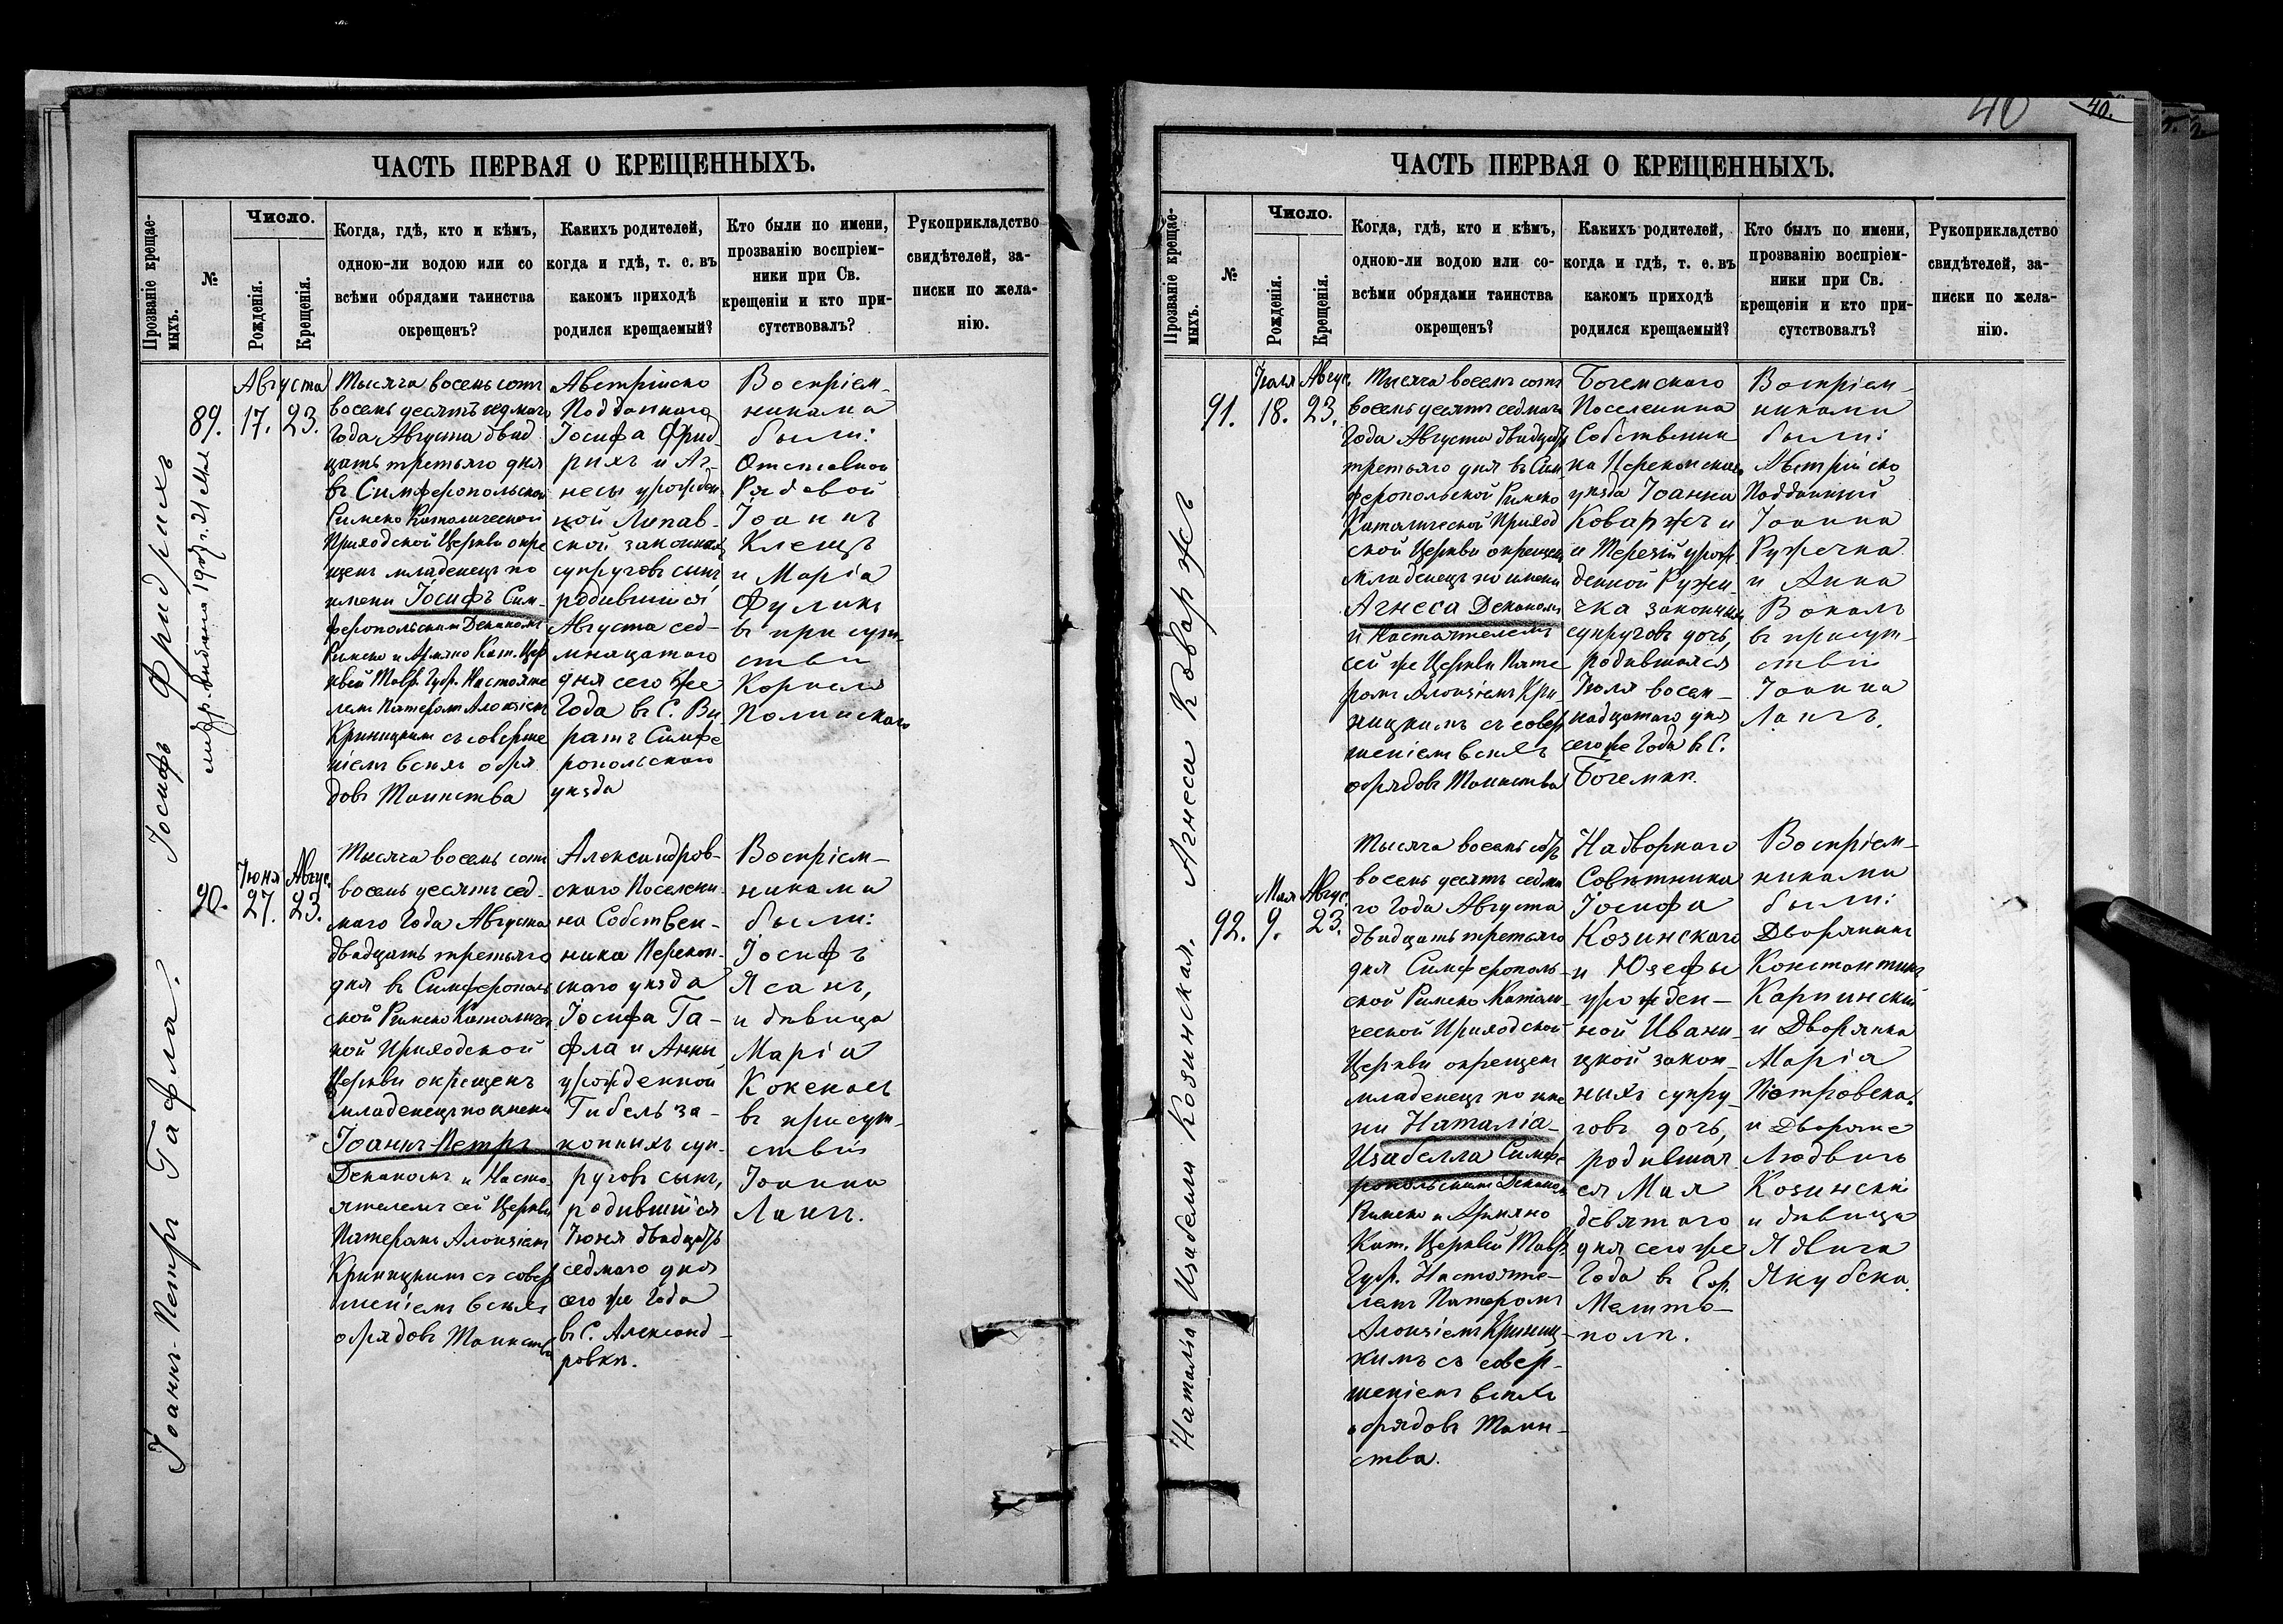 ЧАСТЬ ПЕРВАЯ О КРЕЩЕННЫХЪ.
Прозваніе крещае-
мыхъ.
№
Число.
Рожденія.
Крещенія.
Когда, гдѣ, кто и кѣмъ,
одною-ли водою или со
всѣми обрядами таинства
окрещенъ?
Какихъ родителей,
когда и гдѣ, т. е. въ
какомъ приходѣ
родился крещаемый?
Кто были по имени,
прозванію воспріем-
ники при Св.
крещеніи и кто при-
сутствовалъ?
Рукоприкладство
свидѣтелей, за-
писки по жела-
нію.
Іосифъ Фридрихъ
89.
Августа
17. 23.
Тысяча восемь сотъ
восемь десятъ седмаго
Года Августа двад
цать третьяго дня
въ Симферопольской
Римско Католической
Приходской Церкви окре
щенъ младенецъ по
имени Іосифъ Сим-
феропольскимъ Деканомъ
Римско и Армяно Кат. Цер
квей Тавр. Губ. Настояте
лемъ Патеромъ Алоизіемъ
Криницкимъ съ соверше
ніемъ всѣхъ обря
довъ Таинства
Австрійско
Подданнаго
Іосифа Фрид-
рихъ и Аг-
несы урожден-
ной Липав-
ской законныхъ
супруговъ сынъ
родившійся
Августа сед-
мнацатого
дня сего же
Года въ С. Ви
ратъ Симфе
ропольского
уѣзда
Воспріем-
никама
были:
Отставной
Рядовой
Іоаннъ
Клещъ
и Марія
Фуликъ
въ присут-
ствіи
Корнеля
Полинского
Іоаннъ-Петръ Гафла.
90.
Іюня Авгус.
27. 23.
Тысяча восемь сотъ
восемь десятъ сед-
маго Года Августа
двадцать третьяго
дня въ Симферополь
ской Римско Католичес
кой Приходской
Церкви окрещенъ
младенецъ по имени
Іоаннъ-Петръ
Деканомъ и Насто-
ятелемъ сей Церкви
Патеромъ Алоизіемъ
Криницкимъ съ совер
шеніемъ всѣхъ
обрядовъ Таинства
Александров-
ского Поселени-
на Собствен-
ника Перекоп-
ского уѣзда
Іосифа Га-
фла и Анны
урожденной
Гибель за-
конныхъ суп-
руговъ сынъ,
родившійся
Іюня двадцать
седмаго дня
сего же Года
въ С. Александ-
ровкѣ.
Воспріем-
никама
были:
Іосифъ
Ясанъ,
и дѣвица
Марія
въ присут-
ствіи
Іоанна
Лангъ.
ЧАСТЬ ПЕРВАЯ О КРЕЩЕННЫХЪ.
40
40.
Прозваніе крещае-
мыхъ.
№
Число.
Рожденія.
Крещенія.
Когда, гдѣ, кто и кѣмъ,
одною-ли водою или со-
всѣми обрядами таинства
окрещенъ?
Какихъ родителей,
когда и гдѣ, т. е. въ
какомъ приходѣ
родился крещаемый?
Кто былъ по имени,
прозванію воспріем-
ники при Св.
крещеніи и кто при-
сутствовалъ?
Рукоприкладство
свидѣтелей, за-
писки по жела-
нію.
Агнеса Коваржъ
91.
Іюля Авгус.
18. 23.
Тысяча восемъ сотъ
восемь десятъ седмаго
Года Августа двадцать
третьяго дня въ Сим
феропольской Римско
Католической Приход
ской Церкви окрещенъ
младенецъ по имени
Агнеса Деканомъ
и Настоятелемъ
сей же Церкви Пате
ромъ Алоизіемъ Кри
ницкимъ съ совер
шеніемъ всѣхъ
обрядовъ Таинства
Богемского
Поселенина
Собственни
ка Перекопского
уѣзда Іоанна
Коваржъ и
и Терезіи урож
денной Ружи-
чка законныхъ
супруговъ дочь,
родившаяся
Іюля восем-
надцатого дня
сего же Года въ С.
Богемкѣ.
Воспріем-
никами
были:
Австрійско
Подданный
Іоанна
Ружечка
и Анна
Вокалъ
въ присут-
ствіи
Іоанна
Лангъ.
Наталіа Изабелли Козинская.
92.
Мая Авгус.
9. 23.
Тысяча восемь сотъ
восемь десятъ седма
го Года Августа
двадцать третьяго
дня Симферополь-
ской Римско Катали-
ческой Приходской
Церкви окрещенъ
младенецъ по име
ни Наталіа-
Изабелла Симфе
ропольскимъ Деканом
Римско и Армяно
Кат. Церквей Тавр.
Губ. Настояте-
лемъ Патеромъ
Алоизіемъ Криниц-
кимъ съ совер-
шеніемъ всѣхъ
обрядовъ Таин-
ства.
Надворного
Совѣтника
Іосифа
Козинского
и Юзефы
урожден-
ной Ивани-
цкой закон-
ныхъ супру-
говъ дочь,
родившая
ся Мая
девятого
дня сего же
Года въ Гор.
Мелито-
полѣ.
Воспріем-
никами
были:
Дворянинъ
Константинъ
Карпинскій
и Дворянка
Марія
Петровска.
и Дворяне
Людвигъ
Козинскій
и дѣвица
Ядвига
Якубска.